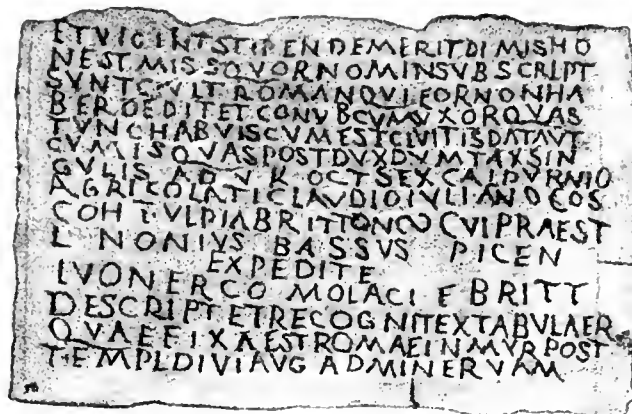 ETVIGINTSTIPENDEMERITDIMISHO
NESTMISSQVORNOMINSVBSCRIPT
SVNTCVLTROMANQVIEORNONHA
BEROEDITETCONVBCVMVXORQVAS
TVNCHABVISCVMESTCIVITISDATAVT
CVMISQVASPOSTDVXDVMTAXSIN
GVLIS A D V K OCTSEXCALPVRNIO
AGRICOLATICLAVDIOIVLIANOCOS
COH I VLPIABRITTON ∞ CVIPRAEST
L NONIVS BASSVS PICEN
EXPEDITE
IVONERCO MOLACI F BRITT
DESCRIPT ETRECOGNITEXTABVLAER
QVAEFIXAESTROMAEINMVRPOST
TEMPLDIVIAVG ADMINERVAM